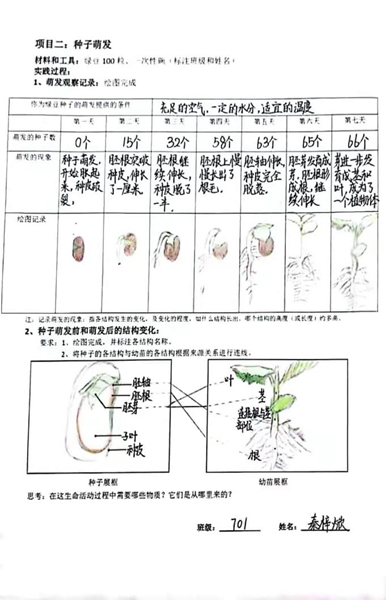 项目二：种子萌发
材料和工具：绿豆 100 粒、一次性碗（标注班级和姓名）
实践过程：
1、萌发观察记录：绘图完成
你为绿豆种子的萌发提供的条件 充足的空气，一定的水分，适宜的温度
第一天 第二天 第三天 第四天 第五天 第六天 第七天
萌发的种子数 0个 15个 32个 58个 63个 65个 66个
萌发的现象
种子萌发，开始胀起来，种皮破裂。
胚根突破种皮，伸长了一厘米
胚根继续伸长，种皮脱了一半。
胚根上慢慢长出了根毛。
胚轴伸长，种皮完全脱落。
胚芽发育成芽，胚根形成根，继续伸长
芽进一步发育成茎和叶，成为了一个植物体
绘图记录
注：记录萌发的现象，指各结构发生的变化，及变化的程度，如什么结构长出，哪个结构的高度（或长度）约多高。
2、种子萌发前和萌发后的结构变化：
要求：1、绘图完成，并标注各结构名称。
2、将种子的各结构与幼苗的各结构根据来源关系进行连线。
胚轴
胚根
胚芽
子叶
种皮
叶
茎
连接根与茎的部位
根
种子展框 幼苗展框
思考：在这生命活动过程中需要哪些物质？它们是从哪里来的？
班级：701 姓名：秦